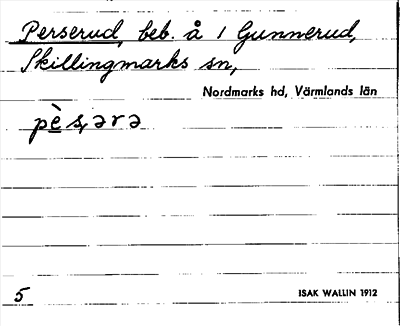 Perserud, beb. å 1 Gunnerud,
Skillingmarks sn,
Nordmarks hd, Värmlands län
pè̠̖s,ərə
5
ISAK WALLIN 1912